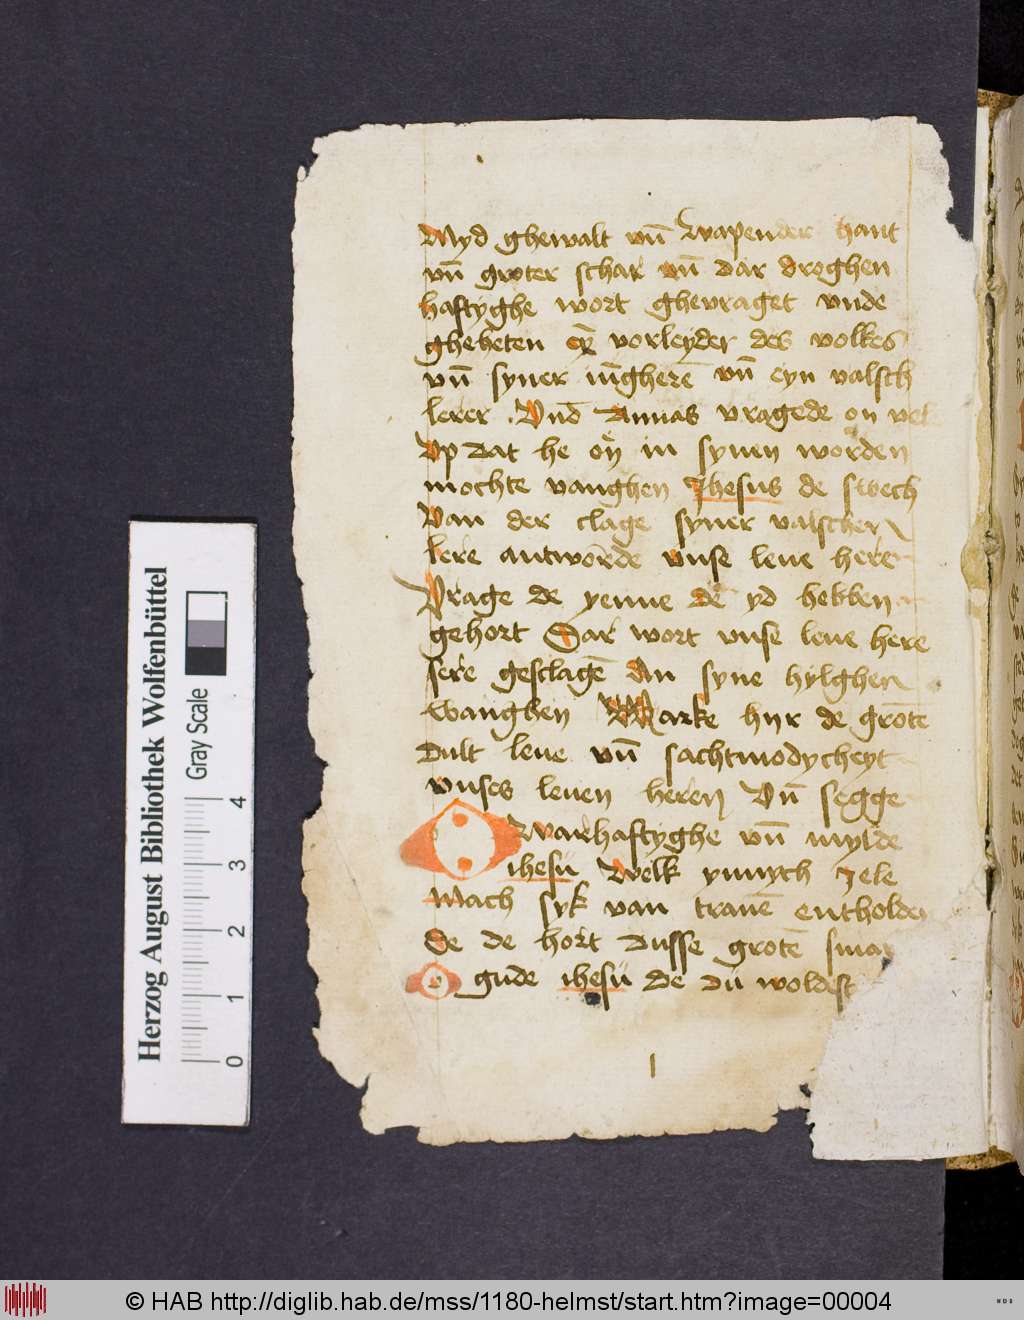 Myd ghewalt vn̄ wapender hant
vn̄ groter schar vn̄ dar droghen
haftyghe wort ghevraget vnde
gheheten eȳ vorleyder des volkes
vn̄ syner iūgherē vn̄ eyn valsch
lerer . Vnd Annas vragede on vele
Vp dat he on in synen worden
mochte vanghen Jhesus de swech
Van der clage syner valschen
lere antworde vnse leue here
Vrage de yenne de yd hebben
gehort Dar wort vnse leue here
sere geslagē An syne hylghen
wanghen Marke hyr de grote
dult leue vn̄ sachtmodycheyt
vnses leuen heren Vn̄ segge
O warhaftyghe vn̄ mylde
ihesu Welk ynnych zele
Mach syk van tranē entholden
De de hort dusse grotē sma
O gude ihesu De du woldest
1
Herzog August Bibliothek Wolfenbüttel
Gray Scale
0 1 2 3 4
© HAB http://diglib.hab.de/mss/1180-helmst/start.htm?image=00004